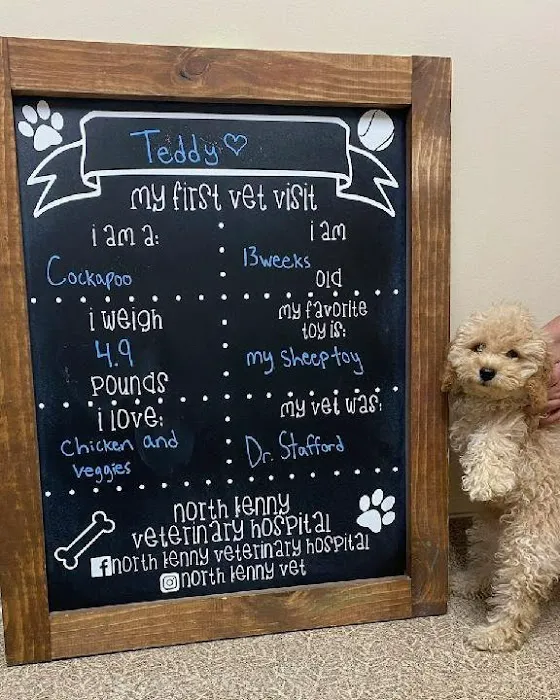 Teddy
my first vet visit
i am a:
Cockapoo
i am
13 weeks
old
i weigh
4.9
pounds
my favorite
toy is:
my sheep toy
i love:
Chicken and
veggies
my vet was:
Dr. Stafford
north kenny
veterinary hospital
north kenny veterinary hospital
north kenny vet